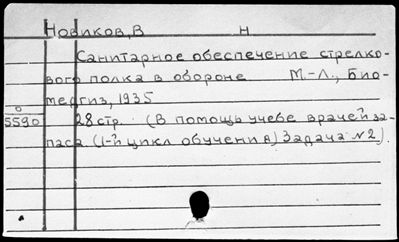 Новиков, В Н
Санитарное обеспечение стрелко-
вого полка в обороне М.-Л., Био-
медгиз, 1935
О
5590
28 стр. (В помощь учебе врачей за-
паса (1-й цикл обучения) Задача №2).